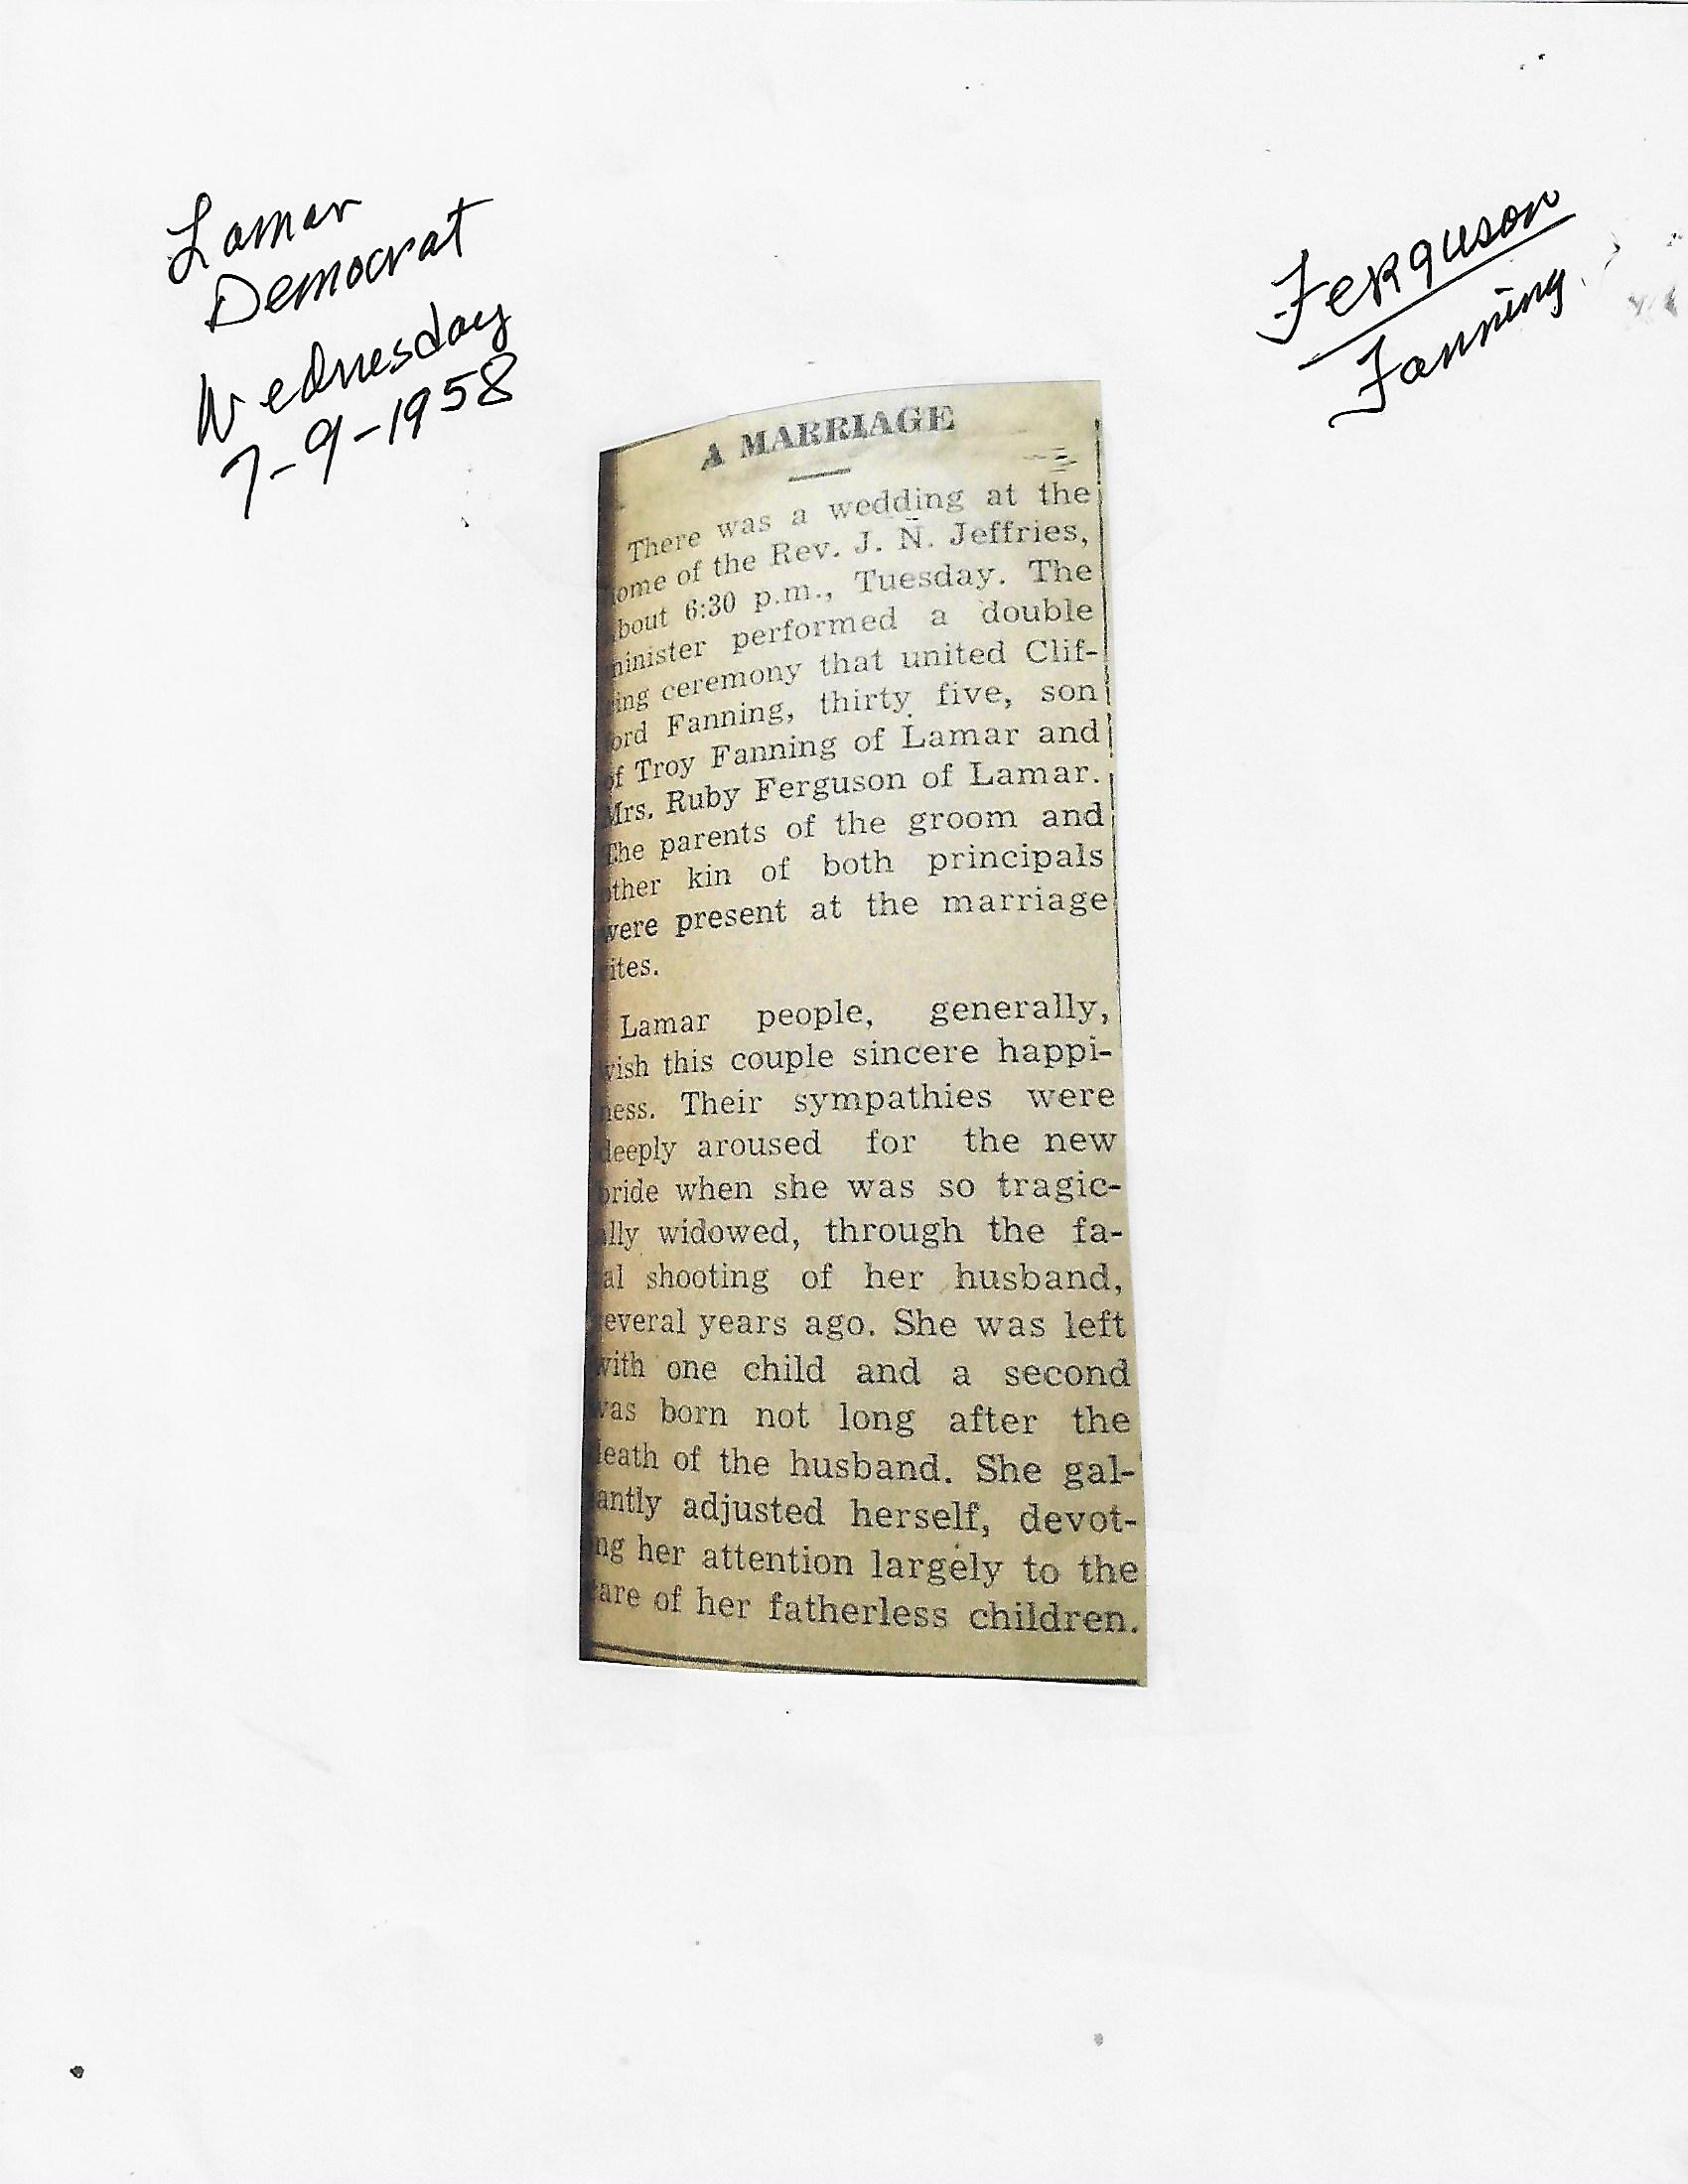 Lamar
Democrat
Wednesday
7-9-1958
Ferguson
Fanning
A MARRIAGE
There was a wedding at the
ome of the Rev. J. N. Jeffries,
bout 6:30 p.m., Tuesday. The
inister performed a double
ing ceremony that united Clif-
ord Fanning, thirty five, son
of Troy Fanning of Lamar and
Mrs. Ruby Ferguson of Lamar.
The parents of the groom and
other kin of both principals
were present at the marriage
ites.
Lamar people, generally,
ish this couple sincere happi-
ness. Their sympathies were
deeply aroused for the new
bride when she was so tragic-
lly widowed, through the fa-
al shooting of her husband,
everal years ago. She was left
with one child and a second
as born not long after the
eath of the husband. She gal-
antly adjusted herself, devot-
ng her attention largely to the
are of her fatherless children.